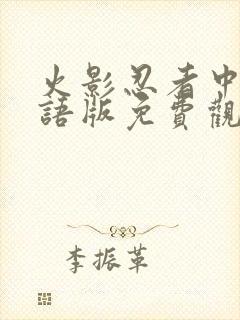 火影忍者中
語版免費觀
李振革